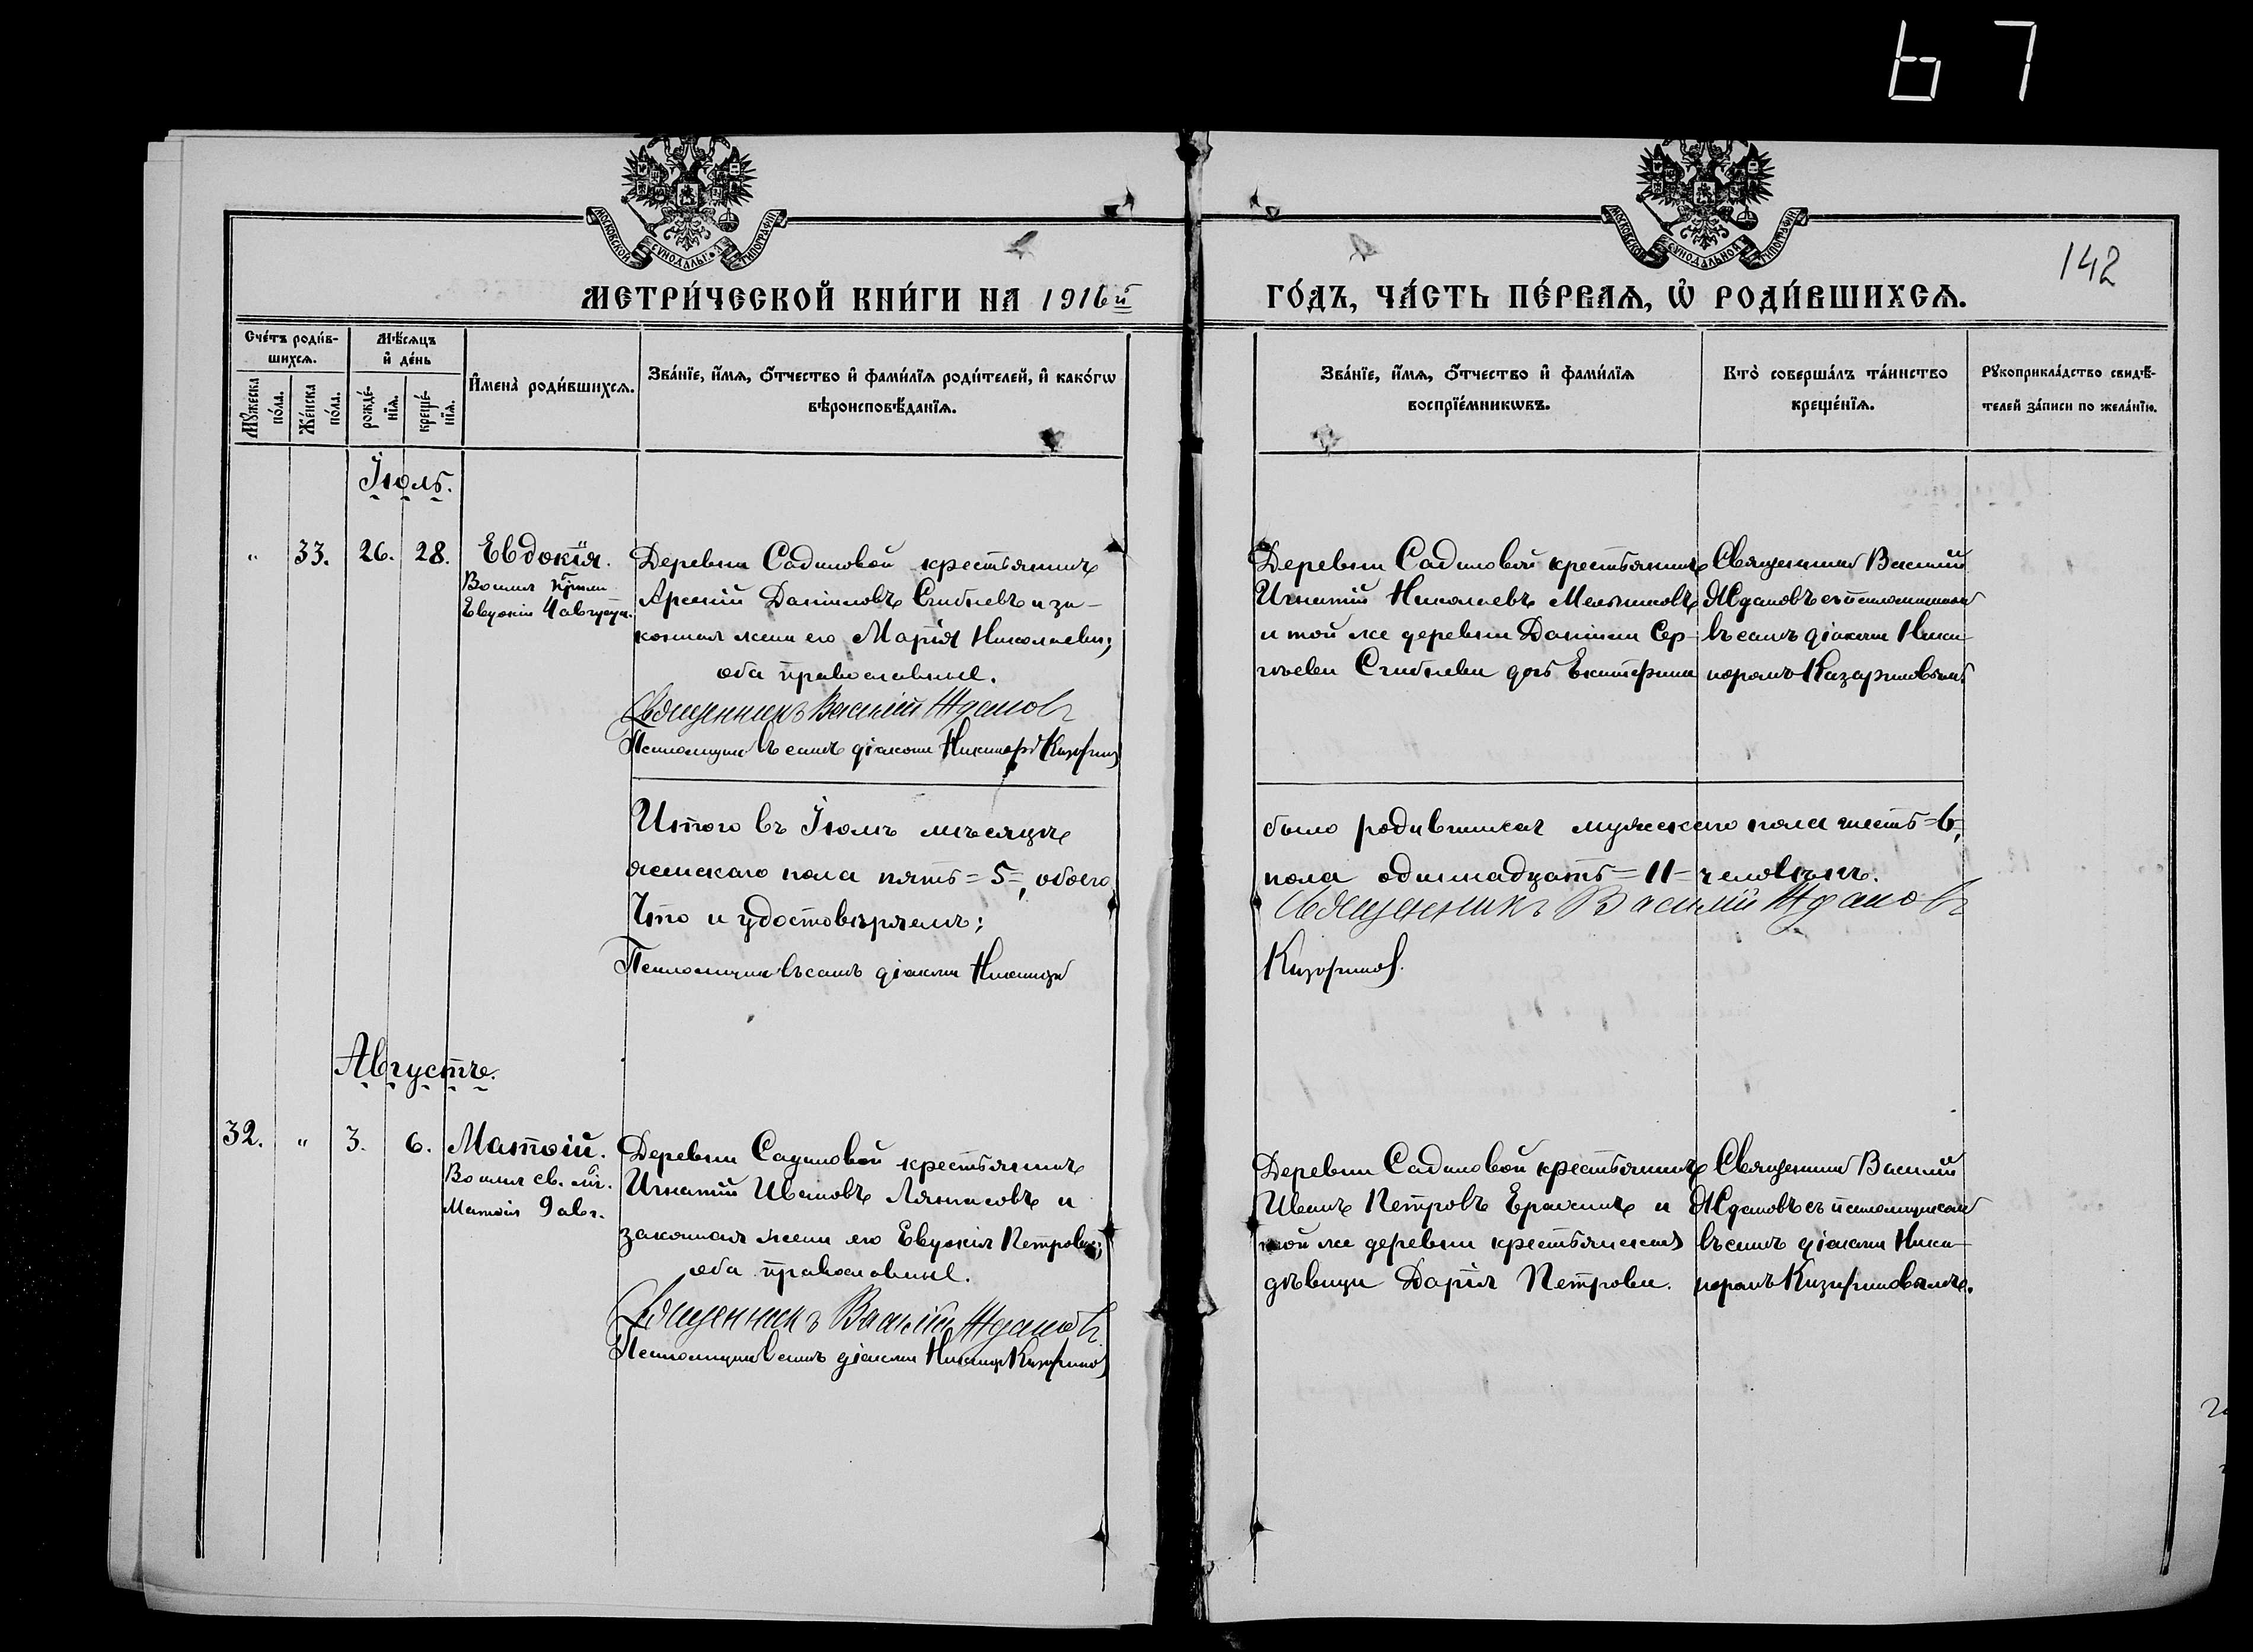 67
МОСКОВСКОЙ СѴНОДАЛЬНОЙ ТИПОГРАФІИ
МОСКОВСКОЙ СѴНОДАЛЬНОЙ ТИПОГРАФІИ
142
МЕТРИ́ЧЕСКОЙ КНИ́ГИ НА 1916й
ГО́ДЪ, ЧА́СТЬ ПЕ́РВАѦ, Ѡ҆ РОДИ́ВШИХСѦ.
Сче́тъ роди́в-
шихсѧ.
Мꙋ́жеска по́ла.
Же́нска по́ла.
Мѣ́сѧцъ
и҆ де́нь
рожде́-
нїѧ.
креще́-
нїѧ.
И҆мена̀ роди́вшихсѧ.
Зва́нїе, и҆́мѧ, ѻ҆́тчество и҆ фами́лїѧ роди́телей, и҆ како́гѡ
вѣроисповѣ́данїѧ.
Зва́нїе, и҆́мѧ, ѻ҆́тчество и҆ фами́лїѧ
воспрїе́мникѡвъ.
Кто̀ соверша́лъ та́инство
креще́нїѧ.
Рꙋкоприкла́дство свидѣ́-
телей за́писи по жела́нїю.
Іюль.
" 33. 26. 28. Евдокія.
Евдокіи 4 августа.
Деревни Садиловой крестьянинъ
Арсеній Даніиловъ Сгибневъ и за-
конная жена его Марія Николаева;
оба православные.
Священникъ Василій Ждановъ
Псаломщикъ въ санѣ діакона Никаноръ Казариновъ
Деревни Садиловой крестьянинъ
Игнатій Николаевъ Мельниковъ
и той же деревни Даніила Сер-
гѣева Сгибнева дочь Екатерина
Священникъ Василій
Ждановъ съ псаломщикомъ
въ санѣ діакона Ника-
норомъ Казариновымъ.
Итого въ Іюлѣ мѣсяцѣ
женскаго пола пять =5=, обоего
Что и удостовѣряемъ:
Псаломщикъ въ санѣ діакона Никаноръ
было родившихся мужскаго пола шесть =6,
пола одиннадцать =11= человѣкъ.
Священникъ Василій Ждановъ
Казариновъ.
Августъ.
32. " 3. 6. Матѳій.
Матѳія 9 авг.
Деревни Садиловой крестьянинъ
Игнатій Ивановъ и
законная жена его Евдокія Петрова;
оба православные.
Священникъ Василій Ждановъ
Псаломщикъ въ санѣ діакона Никаноръ Казариновъ
Деревни Садиловой крестьянинъ
Иванъ Петровъ и
той же деревни крестьянская
дѣвица Дарія Петрова.
Священникъ Василій
Ждановъ съ псаломщикомъ
въ санѣ діакона Ника-
норомъ Казариновымъ.